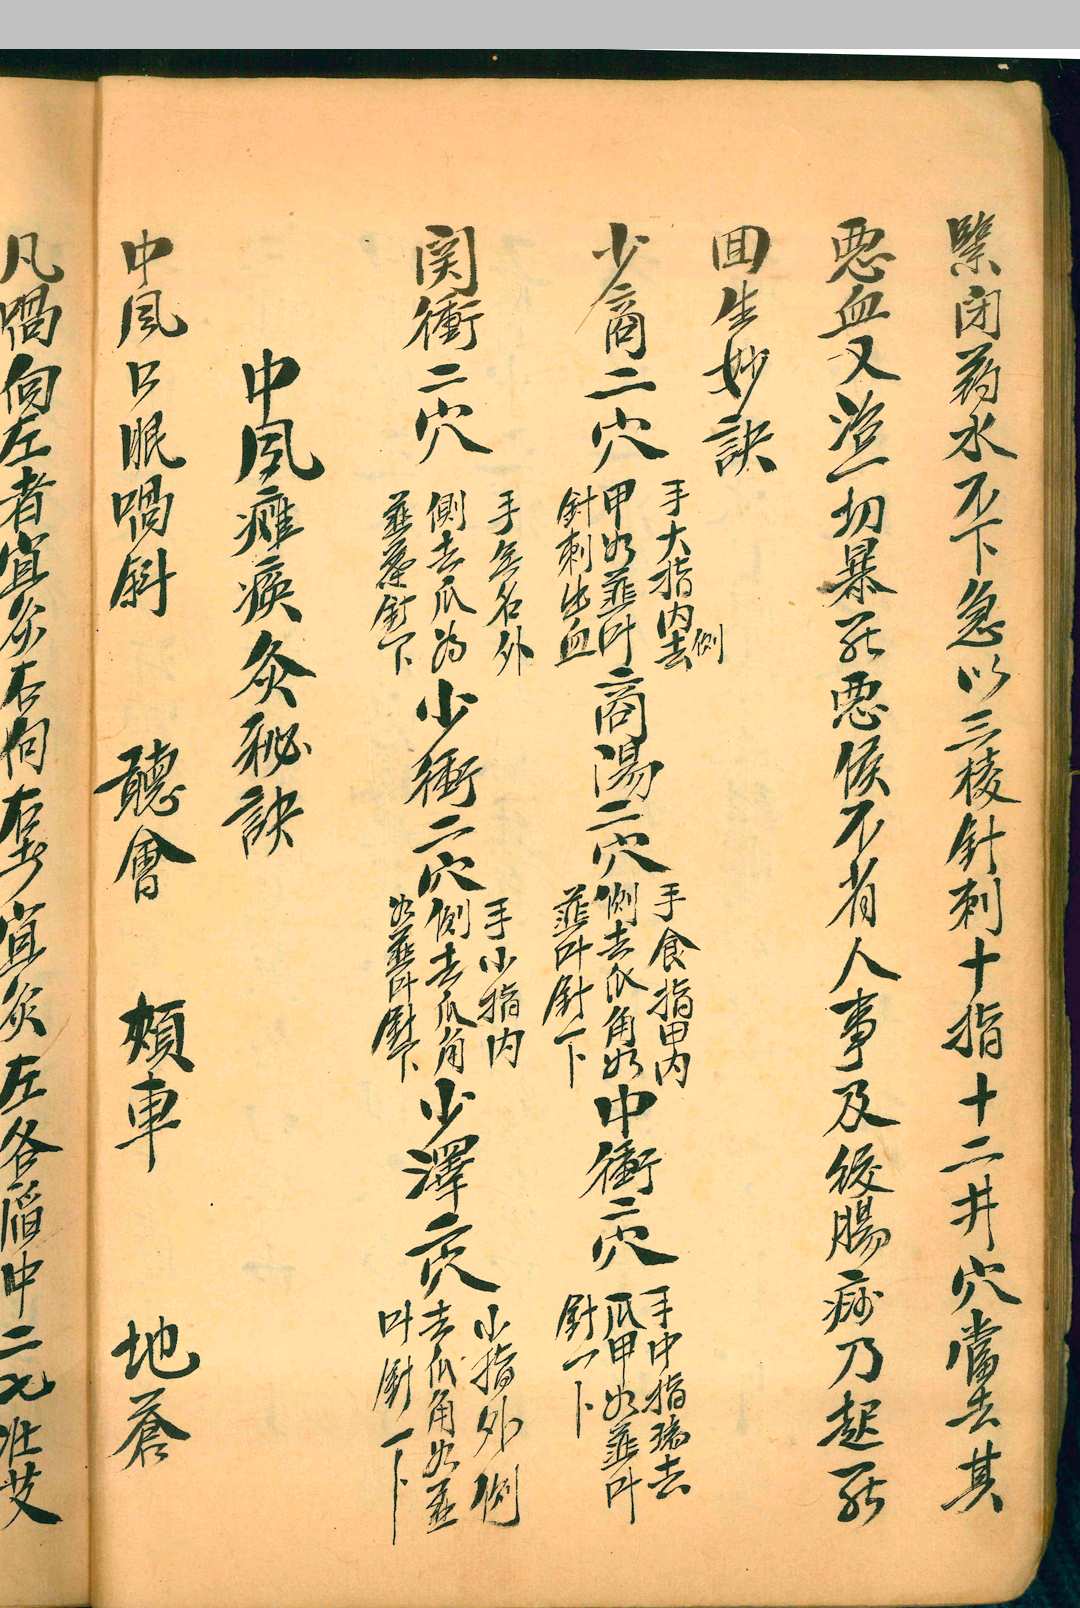 緊闭药水不下急以三棱針刺十指十二井穴當去其
悪血又治一切暴死悪候不省人事及絞腸痧乃起死
回生妙訣
少商二穴 手大指内側去甲如韮叶針刺出血 商陽二穴 手食指甲内側去爪角如韮叶針一下 中衝二穴 手中指端去爪甲如韮叶針一下
関衝二穴 手無名外側去爪為韮葉針下 少衝二穴 手小指内側去爪角如韮叶針一下 少澤二穴 小指外側去爪角如韮叶針一下
中風癱瘓灸秘訣
中風口眼喎斜 聽會 頰車 地蒼
凡喎向左者宜灸右向右者宜灸左各陷中二七壮艾